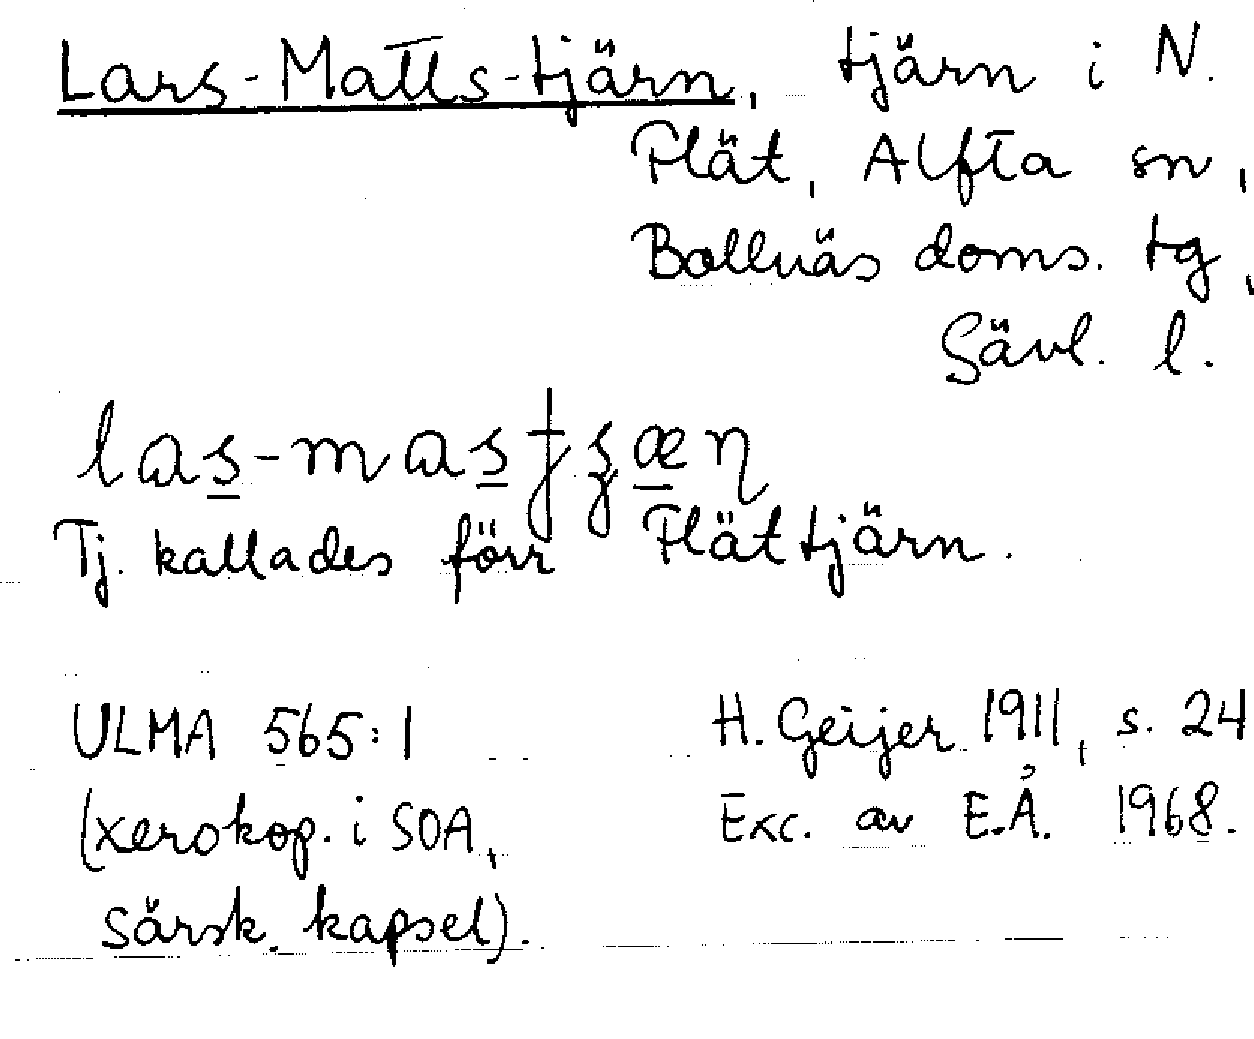 Lars-Matts-tjärn, tjärn i N.
Flät, Alfta sn,
Bollnäs doms. tg,
Gävl. l.
Tj. kallades förr Flättjärn.
ULMA 565:1 H. Geijer 1911, s. 24
(xerokop. i SOA, Exc. av E.Å. 1968.
särsk. kapsel).